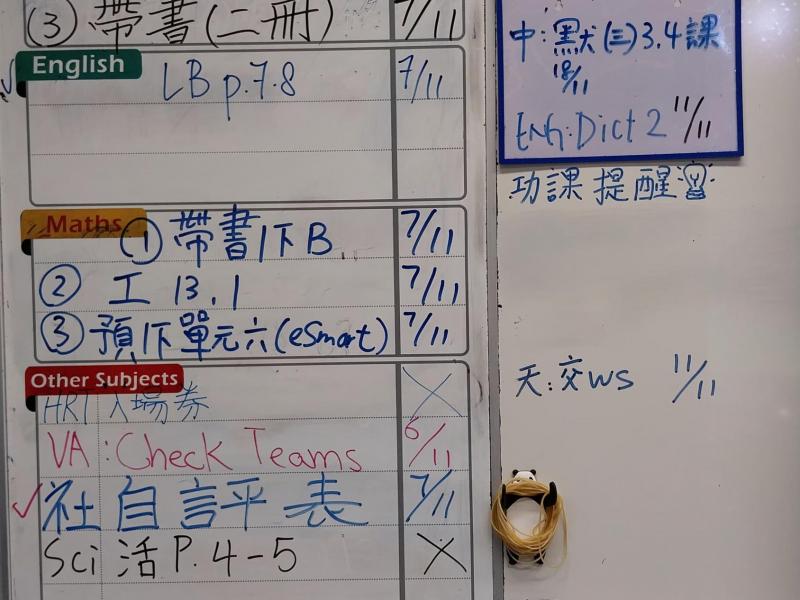 (3) 帶書(二冊) 7/11
English
LB p.7.8 7/11
Maths
① 帶書1下B 7/11
② 工 13.1 7/11
③ 預1下單元六(eSmart) 7/11
Other Subjects
HRT入場券 ×
VA:Check Teams 6/11
社自評表 7/11
Sci 活 P.4-5 ×
中:默(三)3.4課
18/11
ENG:Dict 2 11/11
功課提醒
天:交WS 11/11